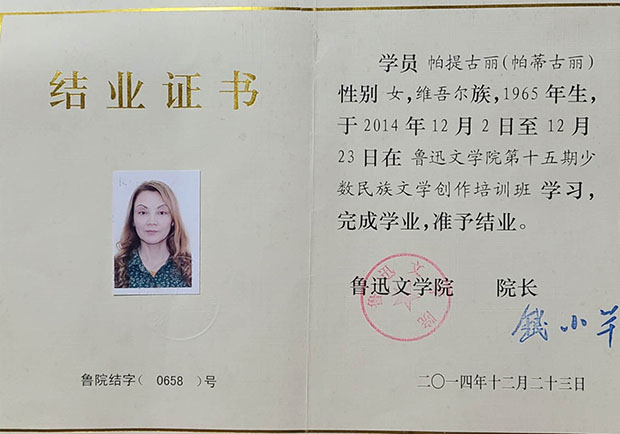 结业证书
鲁院结字( 0658 )号
学员 帕提古丽(帕蒂古丽)
性别 女,维吾尔族,1965 年生,
于 2014 年 12 月 2 日至 12 月
23 日在 鲁迅文学院第十五期少
数民族文学创作培训班 学习,
完成学业,准予结业。
鲁迅文学院 院长
鲁迅文学院
二〇一四年十二月二十三日